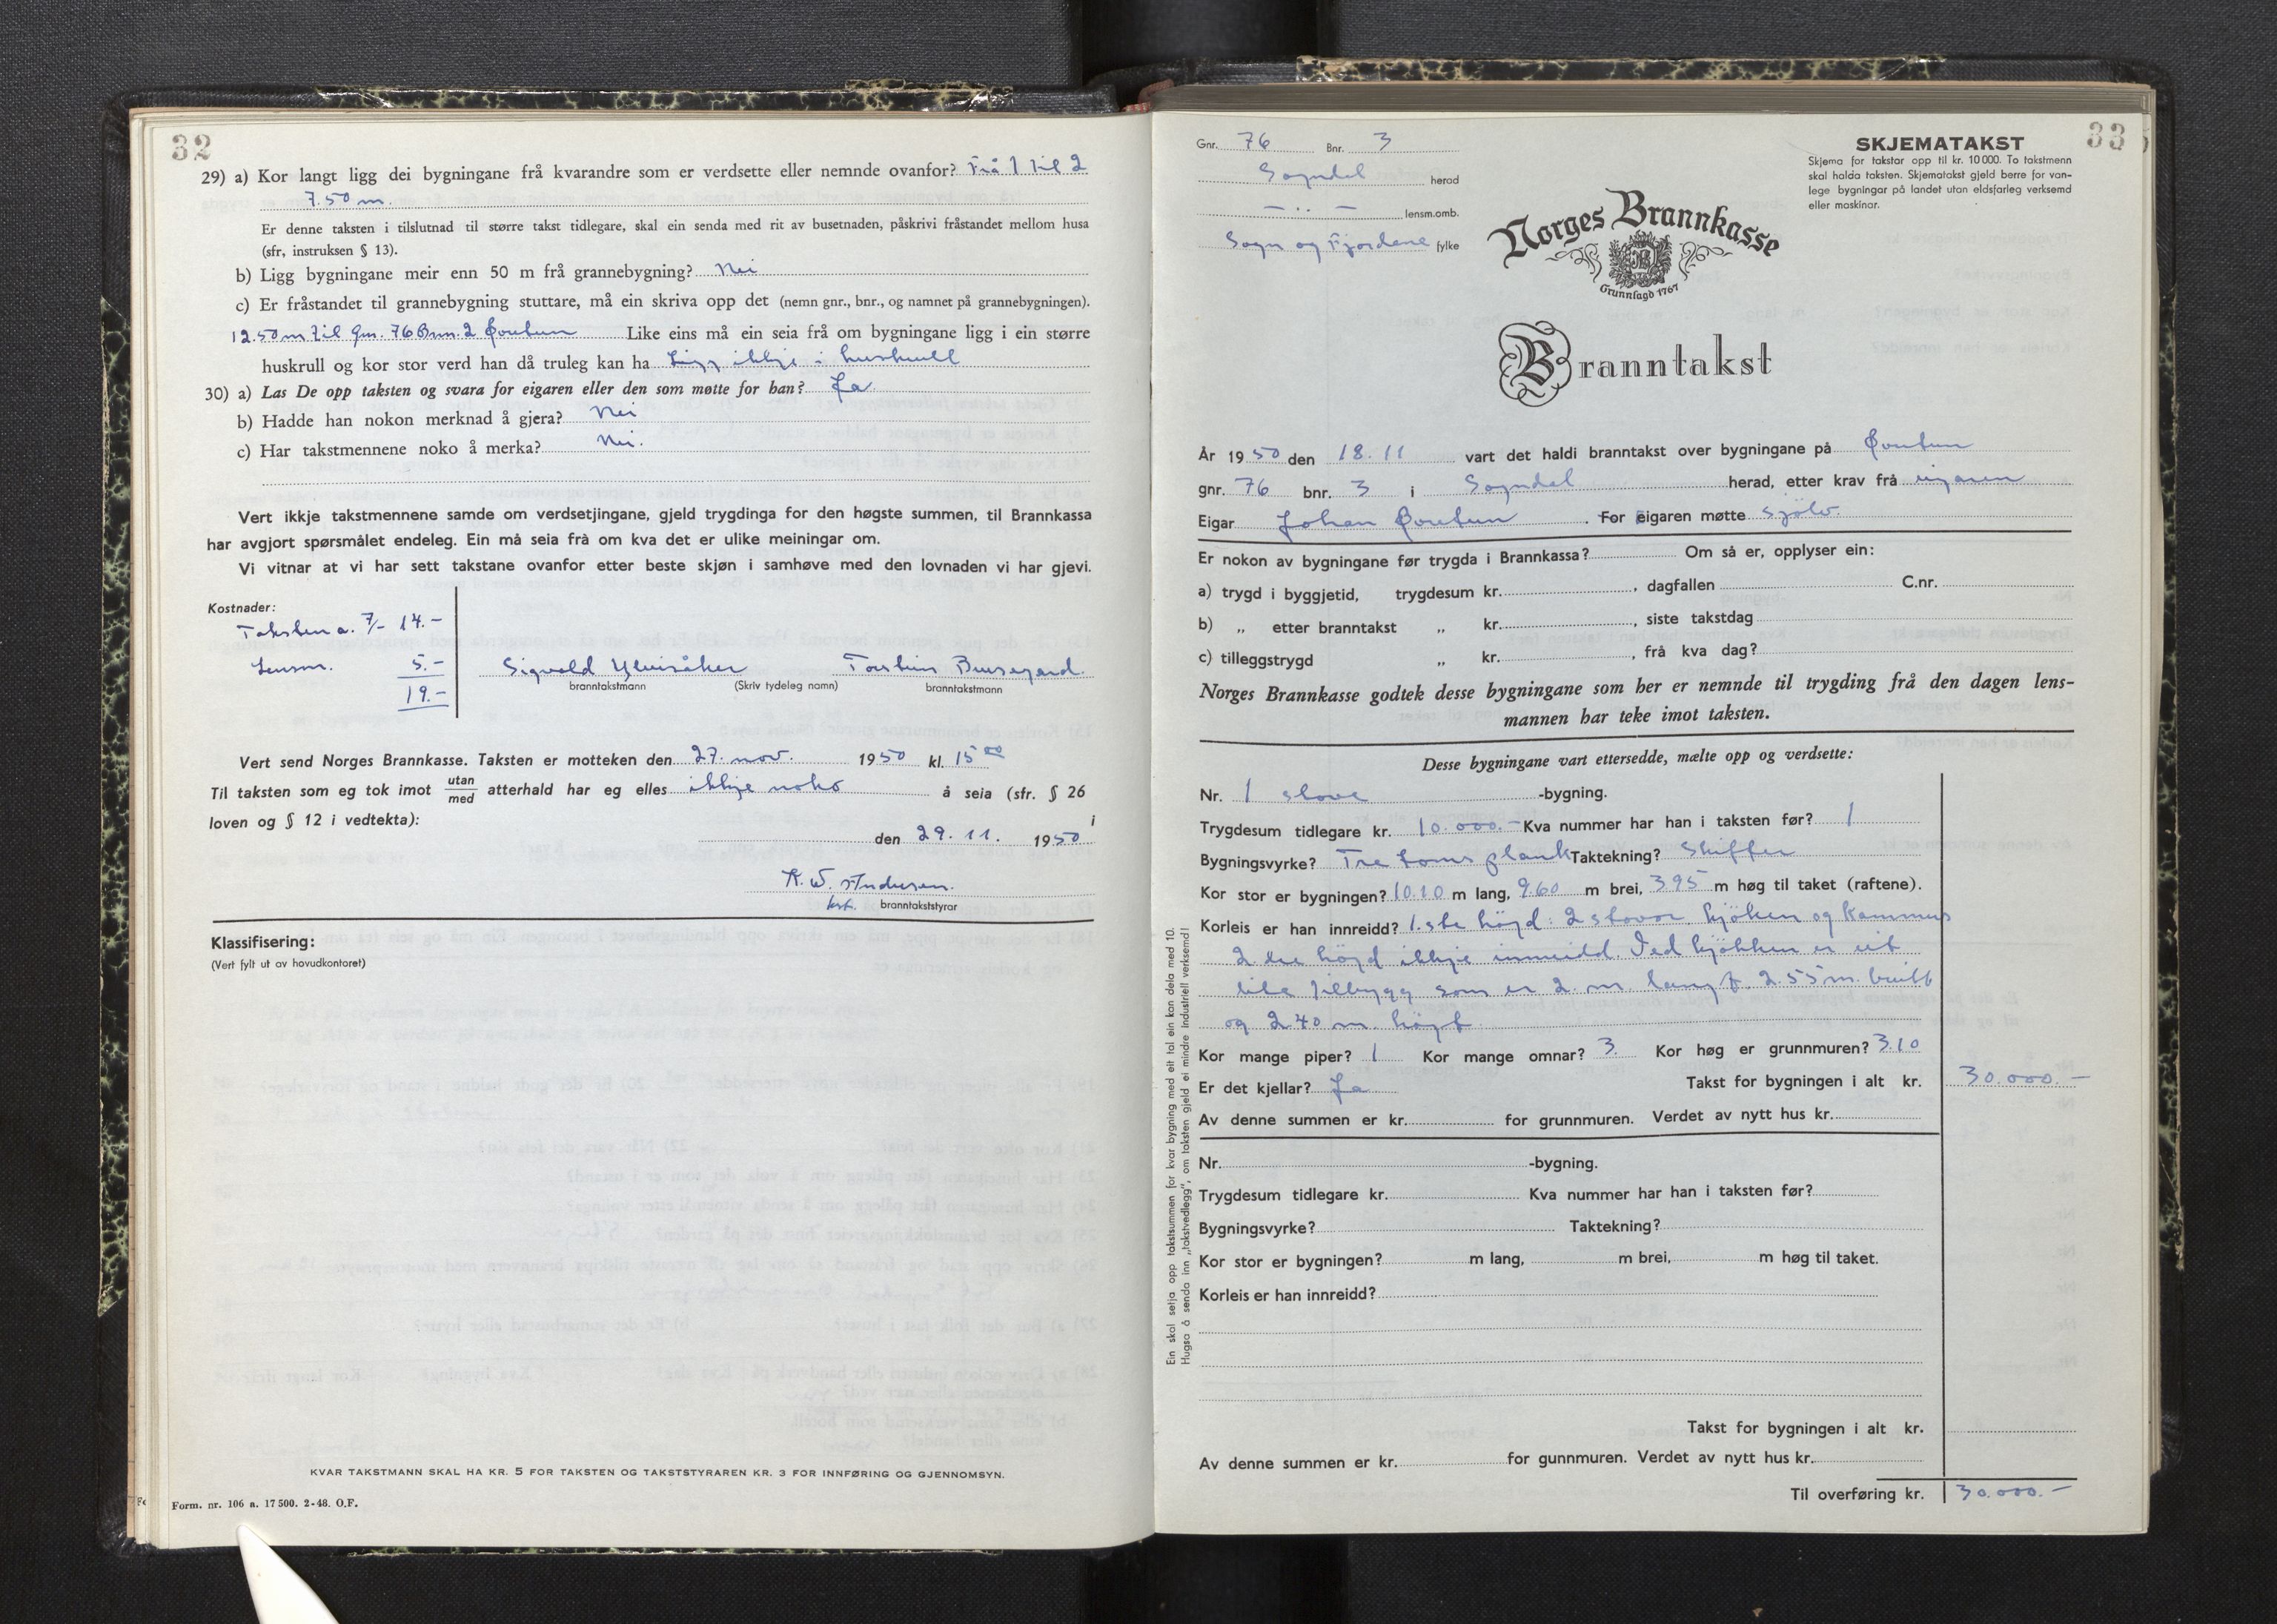 32
29) a) Kor langt ligg dei bygningane frå kvarandre som er verdsette eller nemnde ovanfor? Frå 1 til 2
7.50 m.
Er denne taksten i tilslutnad til større takst tidlegare, skal ein senda med rit av busetnaden, påskrivi fråstandet mellom husa
(sfr, instruksen § 13).
b) Ligg bygningane meir enn 50 m frå grannebygning? Nei
c) Er fråstandet til grannebygning stuttare, må ein skriva opp det (nemn gnr., bnr., og namnet på grannebygningen).
12.50 m til Gnr. 76 Bnr. 2 Øvretun Like eins må ein seia frå om bygningane ligg i ein større
huskrull og kor stor verd han då truleg kan ha Ligg ikkje i huskrull
30) a) Las De opp taksten og svara for eigaren eller den som møtte for han? Ja
b) Hadde han nokon merknad å gjera? Nei
c) Har takstmennene noko å merka? Nei.
Vert ikkje takstmennene samde om verdsetjingane, gjeld trygdinga for den høgste summen, til Brannkassa
har avgjort spørsmålet endeleg. Ein må seia frå om kva det er ulike meiningar om.
Vi vitnar at vi har sett takstane ovanfor etter beste skjøn i samhøve med den lovnaden vi har gjevi.
Kostnader:
Taksten a. 7/- 14.-
Lensm. 5.-
19.-
Sigvald Ylvisåker Torstein
branntakstmann (Skriv tydeleg namn) branntakstmann
Vert send Norges Brannkasse. Taksten er motteken den 27. nov. 1950 kl. 15 00
Til taksten som eg tok imot utan/med atterhald har eg elles ikkje noko å seia (sfr. § 26 i
loven og § 12 i vedtekta):
den 29. 11. 1950
K. W. Andersen.
kst. branntakststyrar
Klassifisering:
(Vert fylt ut av hovudkontoret)
KVAR TAKSTMANN SKAL HA KR. 5 FOR TAKSTEN OG TAKSTSTYRAREN KR. 3 FOR INNFØRING OG GJENNOMSYN.
Form. nr. 106 a. 17500. 2-48. O.F.
33
Gnr. 76 Bnr. 3
Sogndal herad
— .. — lensm.omb.
Sogn og Fjordane fylke
SKJEMATAKST
Skjema for takstar opp til kr. 10 000. To takstmenn
skal halda taksten. Skjematakst gjeld berre for van-
lege bygningar på landet utan eldsfarleg verksemd
eller maskinar.
Norges Brannkasse
Grunnlagd 1767
Branntakst
År 1950 den 18. 11 vart det haldi branntakst over bygningane på Øvretun
gnr. 76 bnr. 3 i Sogndal herad, etter krav frå eigaren
Eigar Johan Øvretun. For eigaren møtte sjølv.
Er nokon av bygningane før trygda i Brannkassa? Om så er, opplyser ein:
a) trygd i byggjetid, trygdesum kr. , dagfallen C.nr.
b) „ etter branntakst „ kr. , siste takstdag
c) tilleggstrygd „ kr. , frå kva dag?
Norges Brannkasse godtek desse bygningane som her er nemnde til trygding frå den dagen lens-
mannen har teke imot taksten.
Desse bygningane vart ettersedde, mælte opp og verdsette:
Nr. 1 stove -bygning.
Trygdesum tidlegare kr. 10.000.- Kva nummer har han i taksten før? 1
Bygningsvyrke? Tre toms plank Taktekning? Skiffer
Kor stor er bygningen? 10.10 m lang, 9.60 m brei, 3.95 m høg til taket (raftene).
Korleis er han innreidd? 1.ste høgd: 2 stover kjøken og kammers
2 dre høgd ikkje innreidd. Ved kjøkken er eit
lite tilbygg som er 2. m. langt 2.55 m. breitt
og 2.40 m. høgt
Kor mange piper? 1 Kor mange omnar? 3. Kor høg er grunnmuren? 3.10
Er det kjellar? Ja Takst for bygningen i alt kr. 30.000.-
Av denne summen er kr. for grunnmuren. Verdet av nytt hus kr.
Nr. -bygning.
Trygdesum tidlegare kr. Kva nummer har han i taksten før?
Bygningsvyrke? Taktekning?
Kor stor er bygningen? m lang, m brei, m høg til taket.
Korleis er han innreidd?
Takst for bygningen i alt kr.
Av denne summen er kr. for gunnmuren. Verdet av nytt hus kr.
Til overføring kr. 30.000.-
Ein skal setja opp takstsummen for kvar bygning med eit tal ein kan dela med 10.
Hugsa å senda inn „takstvedlegg“, om taksten gjeld ei mindre industriell verksemd!